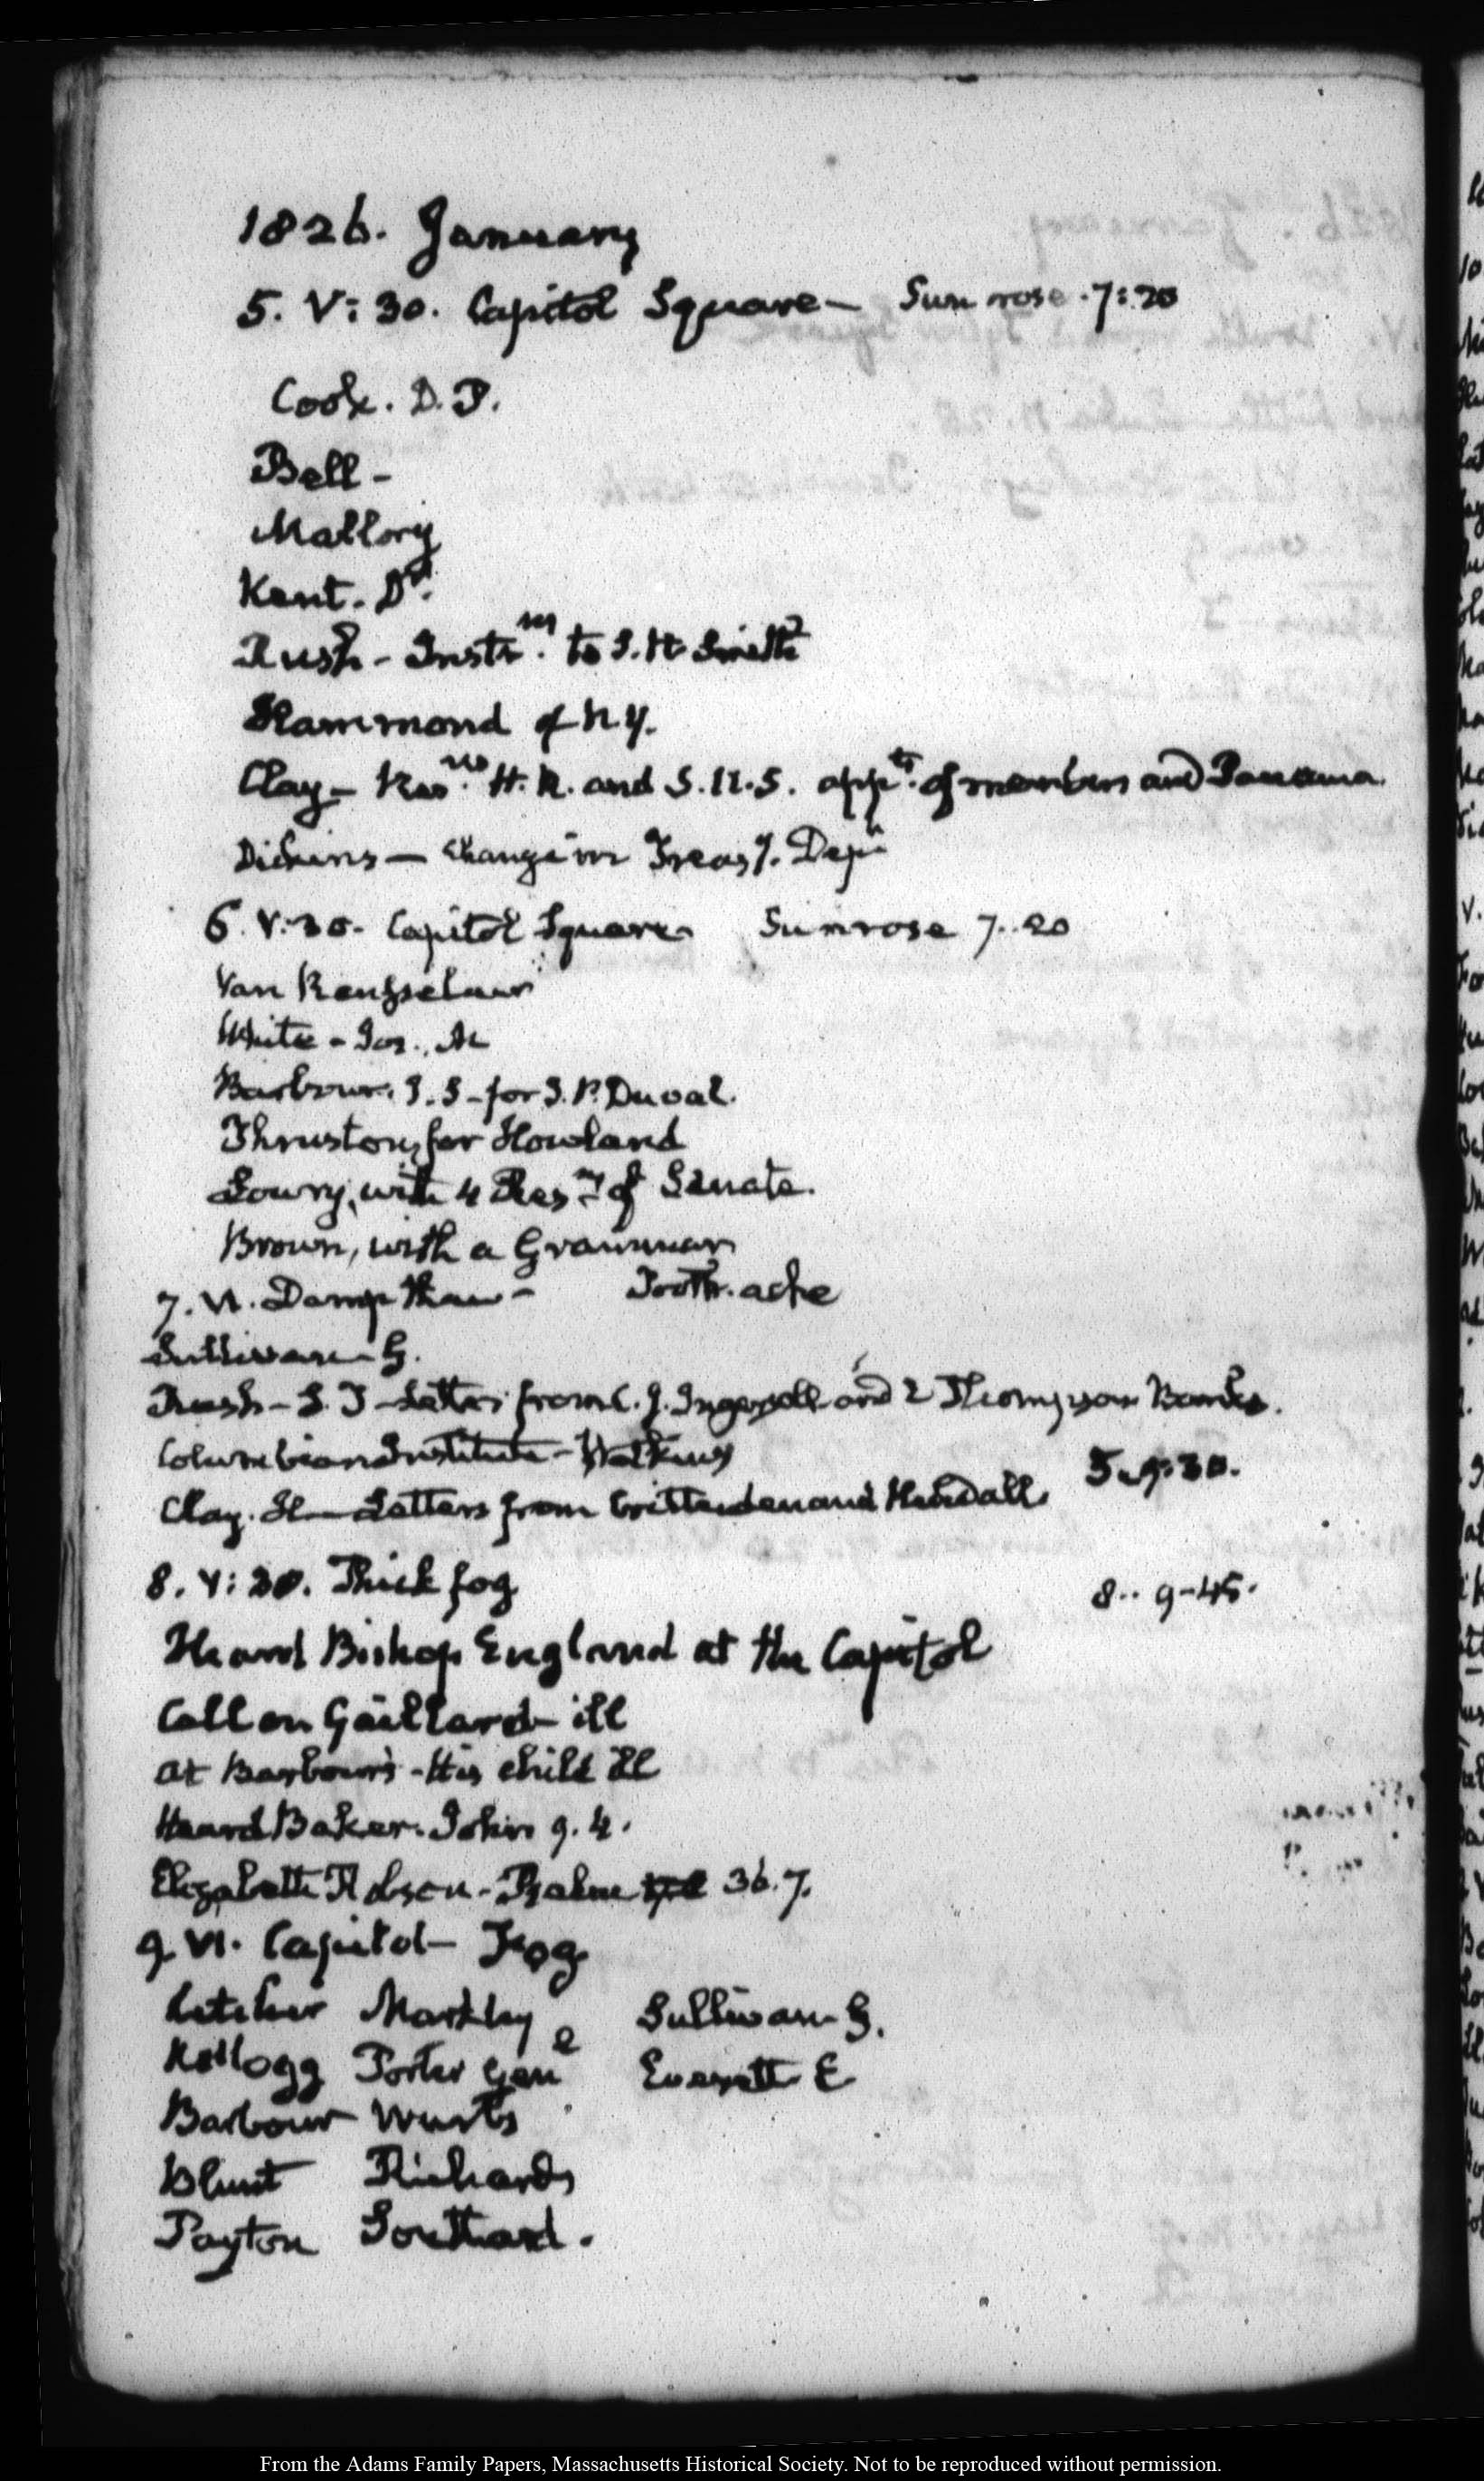 1826. January
5. V: 30. Capitol Square — Sun rose. 7:20
Cook. D. P.
Bell -
Mallory
Kent. Dr.
Rush - Instns. to S. H. Smith
Hammond of N.Y.
Clay - Resns. H. R. and S. U. S. appts. of members and Panama.
Dickins — Change in Treasy. Dept
6. V:30. Capitol Square Sun rose 7..20
Van Rensselaer
White - Jos., M
Barbour. J. S - for J. P. Duval.
Thruston, for Howland
Lowry, with 4 Resns. of Senate.
Brown, with a Grammar
7. VI. Damp thaw - Tooth. ache
Sullivan G.
Rush - Letter from C. J. Ingersoll and 2 Thompson Bonds.
Columbian Institute - Watkins
Clay. H - Letters from Crittenden and Kendall. 5..9:30.
8. V: 30. Thick fog 8.. 9-45.
Heard Bishop England at the Capitol
Call on Gaillard - ill
at Barbour's - His child ill
Heard Baker. John 9. 4.
Elizabeth Robson - Psalm 36. 7.
9. VI. Capitol - Fog
Letcher Markley Sullivan G.
Kellogg Porter Genl Everett E
Barbour Wurts
Blunt Richards
Payton Southard.
From the Adams Family Papers, Massachusetts Historical Society. Not to be reproduced without permission.